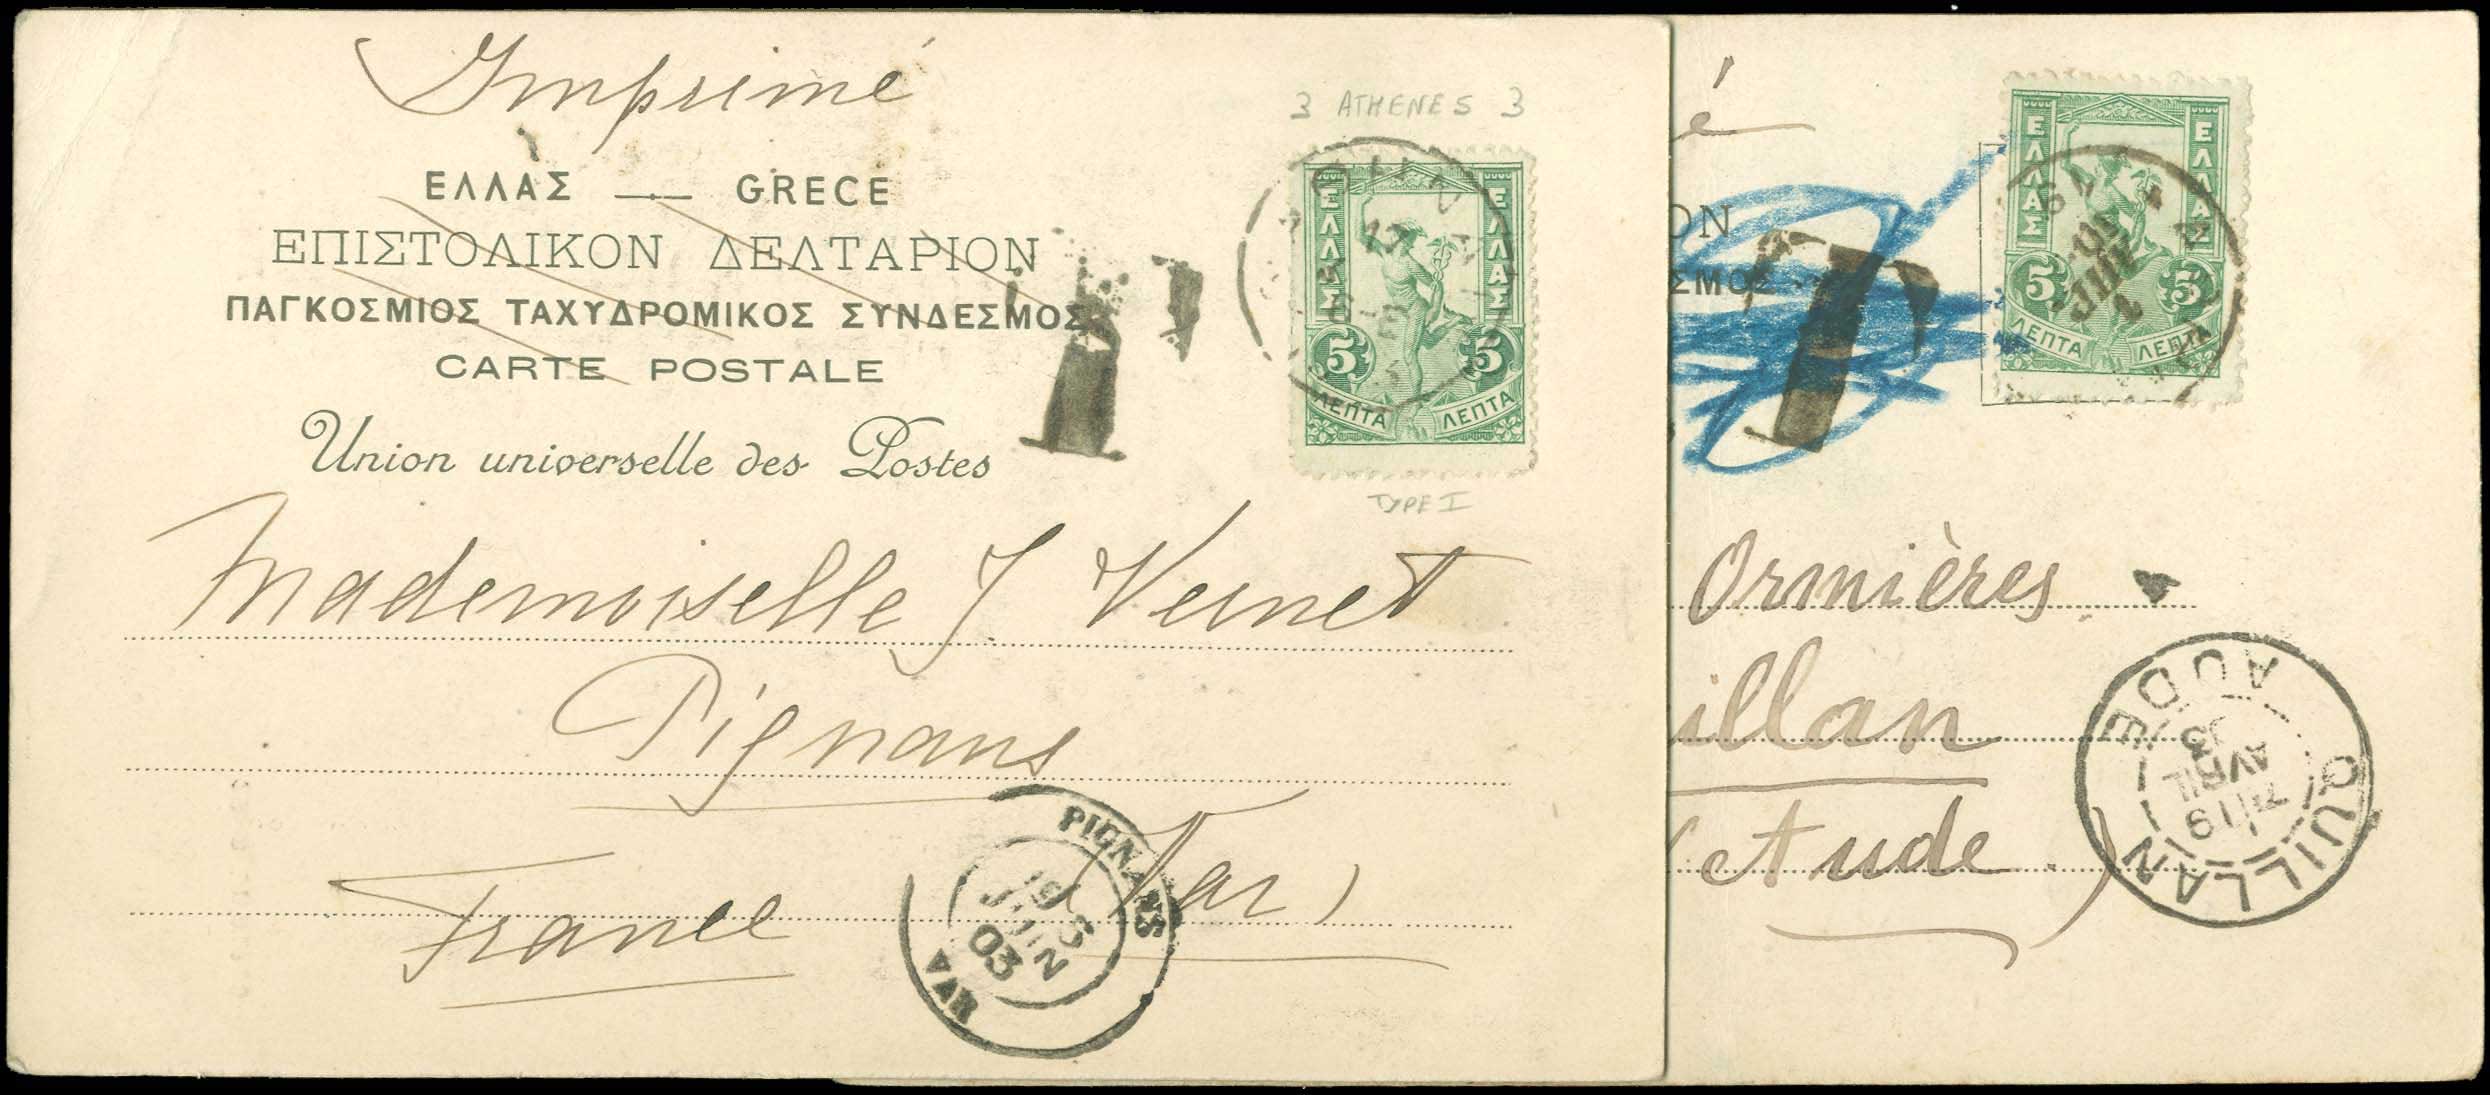 Imprimé
3 ATHENES 3
ΕΛΛΑΣ — GRECE
ΕΠΙΣΤΟΛΙΚΟΝ ΔΕΛΤΑΡΙΟΝ
ΠΑΓΚΟΣΜΙΟΣ ΤΑΧΥΔΡΟΜΙΚΟΣ ΣΥΝΔΕΣΜΟΣ
CARTE POSTALE
Union universelle des Postes
T
ΕΛΛΑΣ ΕΛΛΑΣ
5 5
ΛΕΠΤΑ ΛΕΠΤΑ
TYPE I
Mademoiselle J Vernet
Pignans
France (Var)
PIGNANS
JUIN
03
VAR
é
ΟΝ
ΣΜΟΣ
T
ΕΛΛΑΣ ΕΛΛΑΣ
5 5
ΛΕΠΤΑ ΛΕΠΤΑ
Ormières
illan
(Aude)
QUILLAN
AVRIL
AUDE